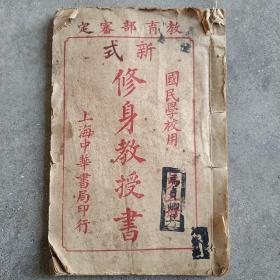 教育部審定
新式
國民學校用
修身教授書
上海中華書局印行